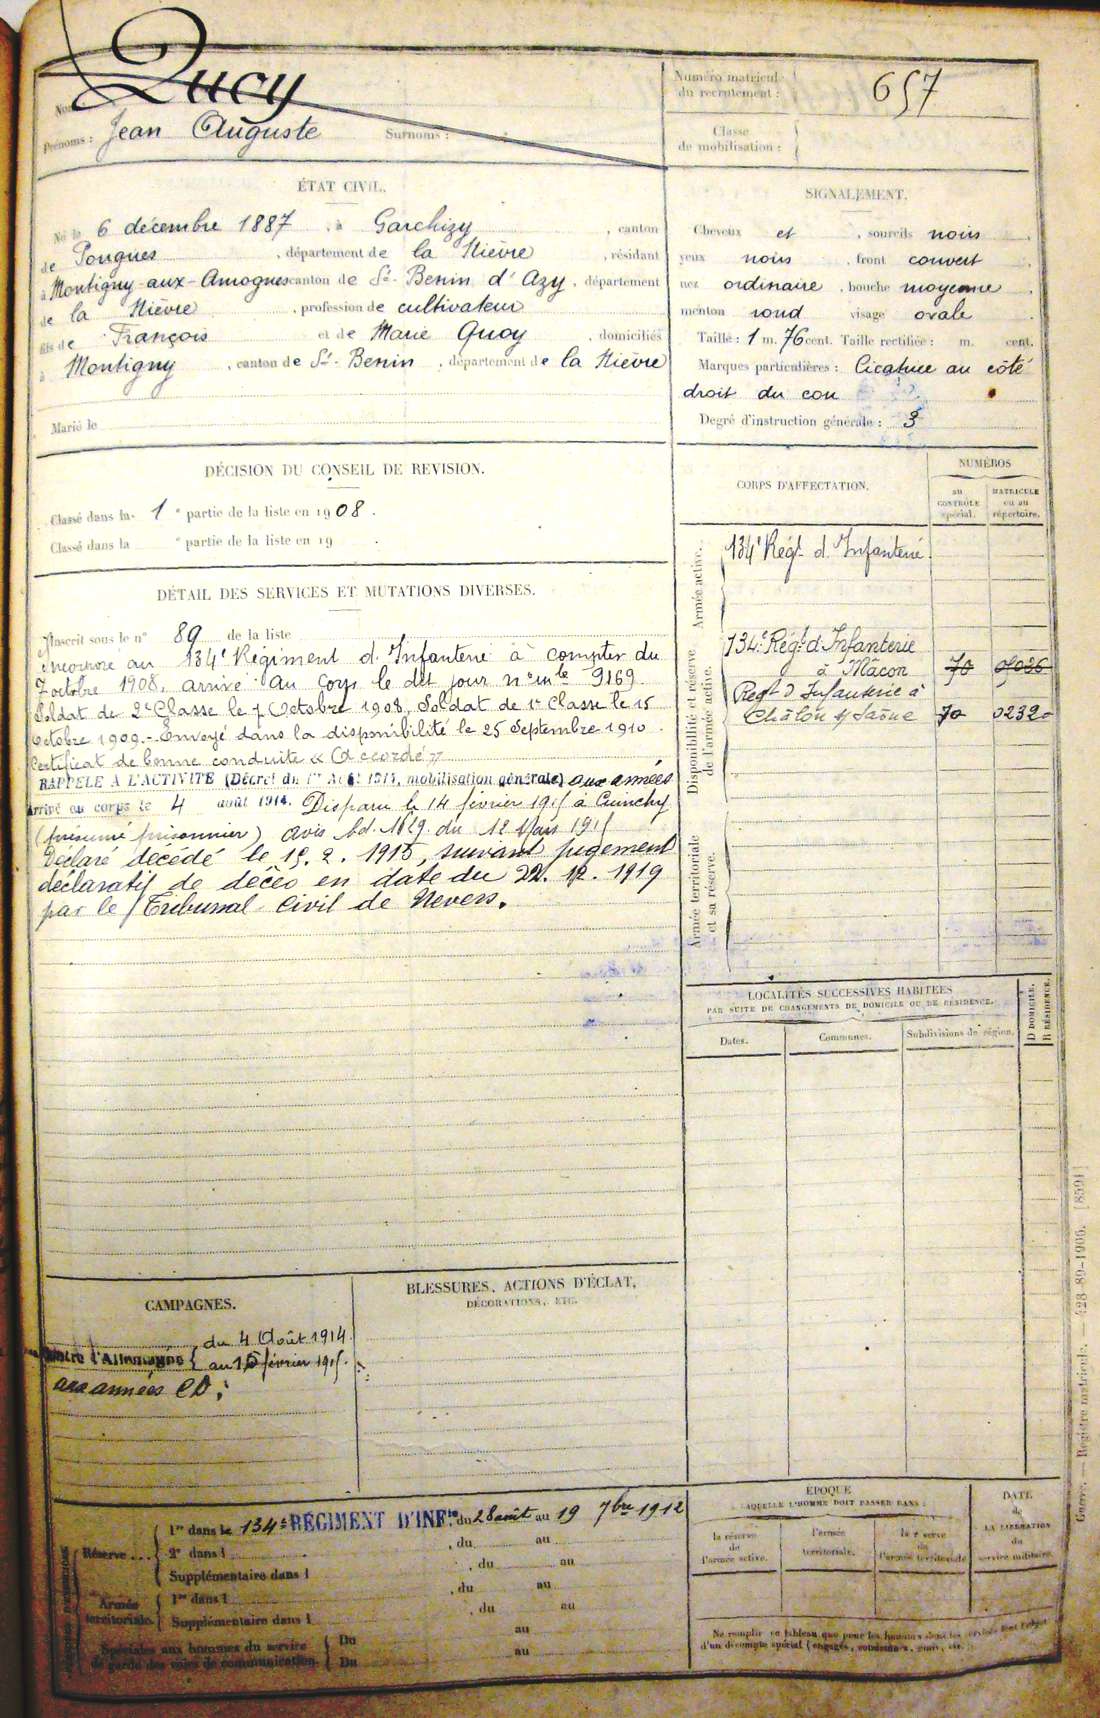 Nom : Quoy
Prénoms : Jean Auguste Surnoms :
Numéro matricule du recrutement : 657
Classe de mobilisation :
ÉTAT CIVIL.
Né le 6 décembre 1887, à Garchizy, canton
de Pougues, département de la Nièvre, résidant
à Montigny-aux-Amognes canton de St-Benin d'Azy, département
de la Nièvre, profession de cultivateur
fils de François et de Marie Quoy, domiciliés
à Montigny, canton de St-Benin, département de la Nièvre
Marié le
SIGNALEMENT.
Cheveux et, sourcils noirs,
yeux noirs, front couvert,
nez ordinaire, bouche moyenne,
menton rond visage ovale.
Taille : 1 m. 76 cent. Taille rectifiée : m. cent.
Marques particulières : Cicatrice au côté
droit du cou
Degré d'instruction générale : 3
DÉCISION DU CONSEIL DE REVISION.
Classé dans la 1e partie de la liste en 1908.
Classé dans la e partie de la liste en 19 .
DÉTAIL DES SERVICES ET MUTATIONS DIVERSES.
Inscrit sous le n° 89 de la liste
Incorporé au 134e Régiment d'Infanterie à compter du
7 octobre 1908, arrivé au corps le dit jour n° mle 9169
Soldat de 2e Classe le 7 Octobre 1908, Soldat de 1e Classe le 15
Octobre 1909.- Envoyé dans la disponibilité le 25 Septembre 1910.
Certificat de bonne conduite « Accordé »
RAPPELÉ A L'ACTIVITÉ (Décret du 1er Août 1914, mobilisation générale) aux armées
Arrivé au corps le 4 août 1914. Disparu le 14 février 1915 à Cuinchy
(présumé prisonnier) avis Md. 1829 du 12 Mars 1915
Déclaré décédé le 15.2.1915, suivant jugement
déclaratif de décès en date du 22.12.1919
par le Tribunal Civil de Nevers.
CORPS D'AFFECTATION.
NUMÉROS
au CONTRÔLE spécial.
MATRICULE ou au répertoire.
Armée active.
134e Régt d'Infanterie.
Disponibilité et réserve de l'armée active.
134e Régt d'Infanterie
à Mâcon 70
Régt d'Infanterie à
Châlon s/ Saône 70 02320
Armée territoriale et sa réserve.
LOCALITÉS SUCCESSIVES HABITÉES
PAR SUITE DE CHANGEMENTS DE DOMICILE OU DE RÉSIDENCE.
Dates.
Communes.
Subdivisions de région.
D DOMICILE.
R RÉSIDENCE.
CAMPAGNES.
Contre l'Allemagne { du 4 Août 1914
au 15 février 1915.
aux armées CD.
BLESSURES, ACTIONS D'ÉCLAT,
DÉCORATIONS, ETC.
Réserve ...
1re dans le 134e RÉGIMENT D'INFie du 28 août au 19 7bre 1912
2e dans l , du au
Supplémentaire dans l , du au
Armée territoriale.
1re dans l , du au
Supplémentaire dans l , du au
Spéciales aux hommes du service
de garde des voies de communication.
Du au
Du au
ÉPOQUE
À LAQUELLE L'HOMME DOIT PASSER DANS :
la réserve de l'armée active.
l'armée territoriale.
la réserve de l'armée territoriale
DATE
de
LA LIBÉRATION
du
service militaire.
Ne remplir ce tableau que pour les hommes dont les services font l'objet
d'un décompte spécial (engagés, condamnés, omis, etc.)
Guerre. — Registre matricule. — 428-89-1906. [8591]